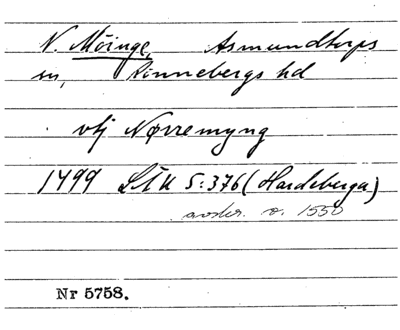 N. Möinge, Asmundtorps
sn, Rönnebergs hd
vtj Nørremyng
1499 LÅU 5:376 (Hardeberga)
avskr. o. 1550
Nr 5758.